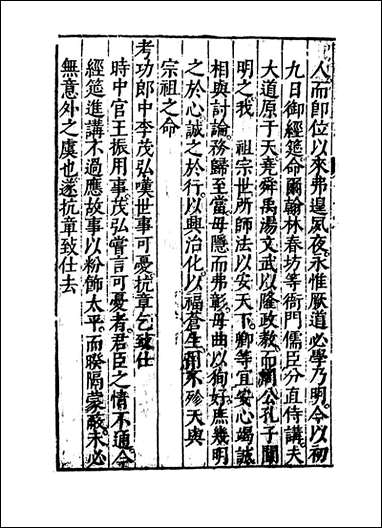 人而即位以來弗遑夙夜永惟厥道必學乃明今以初
九日御經筵命爾翰林春坊等衙門儒臣分直侍講夫
大道原于天堯舜禹湯文武以隆政教而周公孔子闡
明之我 祖宗世所師法以安天下卿等宜安心竭誠
相與討論務歸至當毋隱而弗彰毋曲以狥好庶幾明
之於心誠之於行以興治化以福蒼生用不殄天與
宗祖之命
考功郎中李茂弘嘆世事可憂抗章乞致仕
時中官王振用事茂弘嘗言可憂者君臣之情不通今
經筵進講不過應故事以粉飾太平而暌隔蒙蔽未必
無意外之虞也遂抗章致仕去